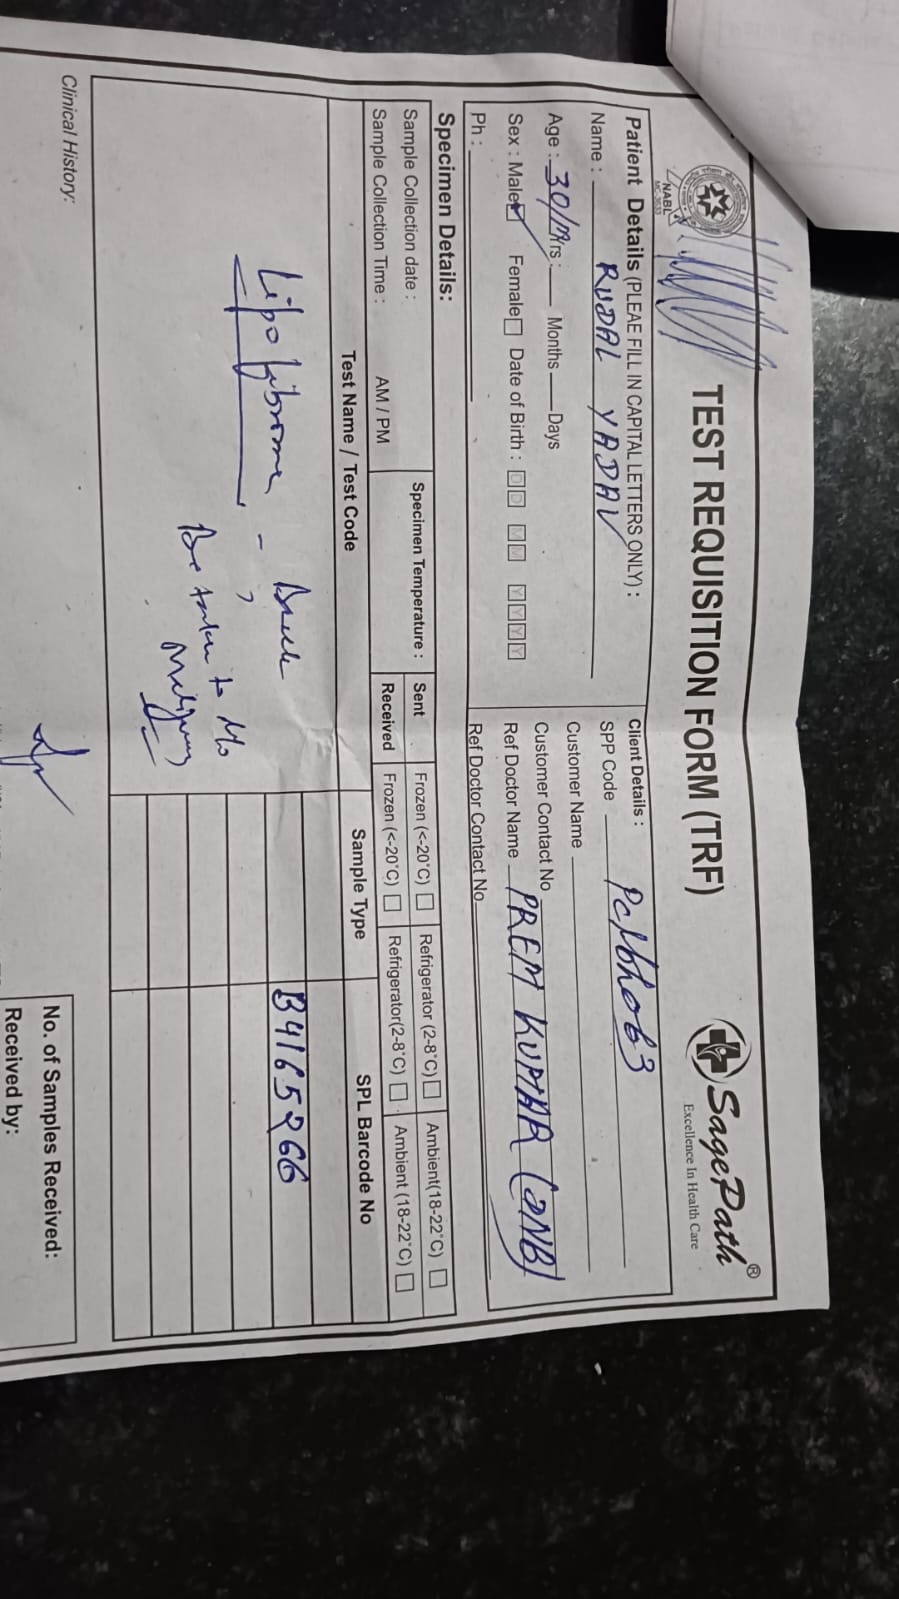 NABL
MC-3633
TEST REQUISITION FORM (TRF)
SagePath®
Excellence In Health Care
Patient Details (PLEAE FILL IN CAPITAL LETTERS ONLY) :
Name : RUDAL YADAV
Age : 30/M Yrs : Months Days
Sex : Male Female Date of Birth : D D M M Y Y Y Y
Ph :
Client Details :
SPP Code
Customer Name
Customer Contact No
Ref Doctor Name PREM KUMAR (DNB)
Ref Doctor Contact No
Specimen Details:
Sample Collection date :
Sample Collection Time : AM / PM
Specimen Temperature :
Sent Frozen (<-20°C) Refrigerator (2-8°C) Ambient(18-22°C)
Received Frozen (<-20°C) Refrigerator(2-8°C) Ambient (18-22°C)
Test Name / Test Code Sample Type SPL Barcode No
Lipofibroma -
B4165266
Clinical History:
No. of Samples Received:
Received by: